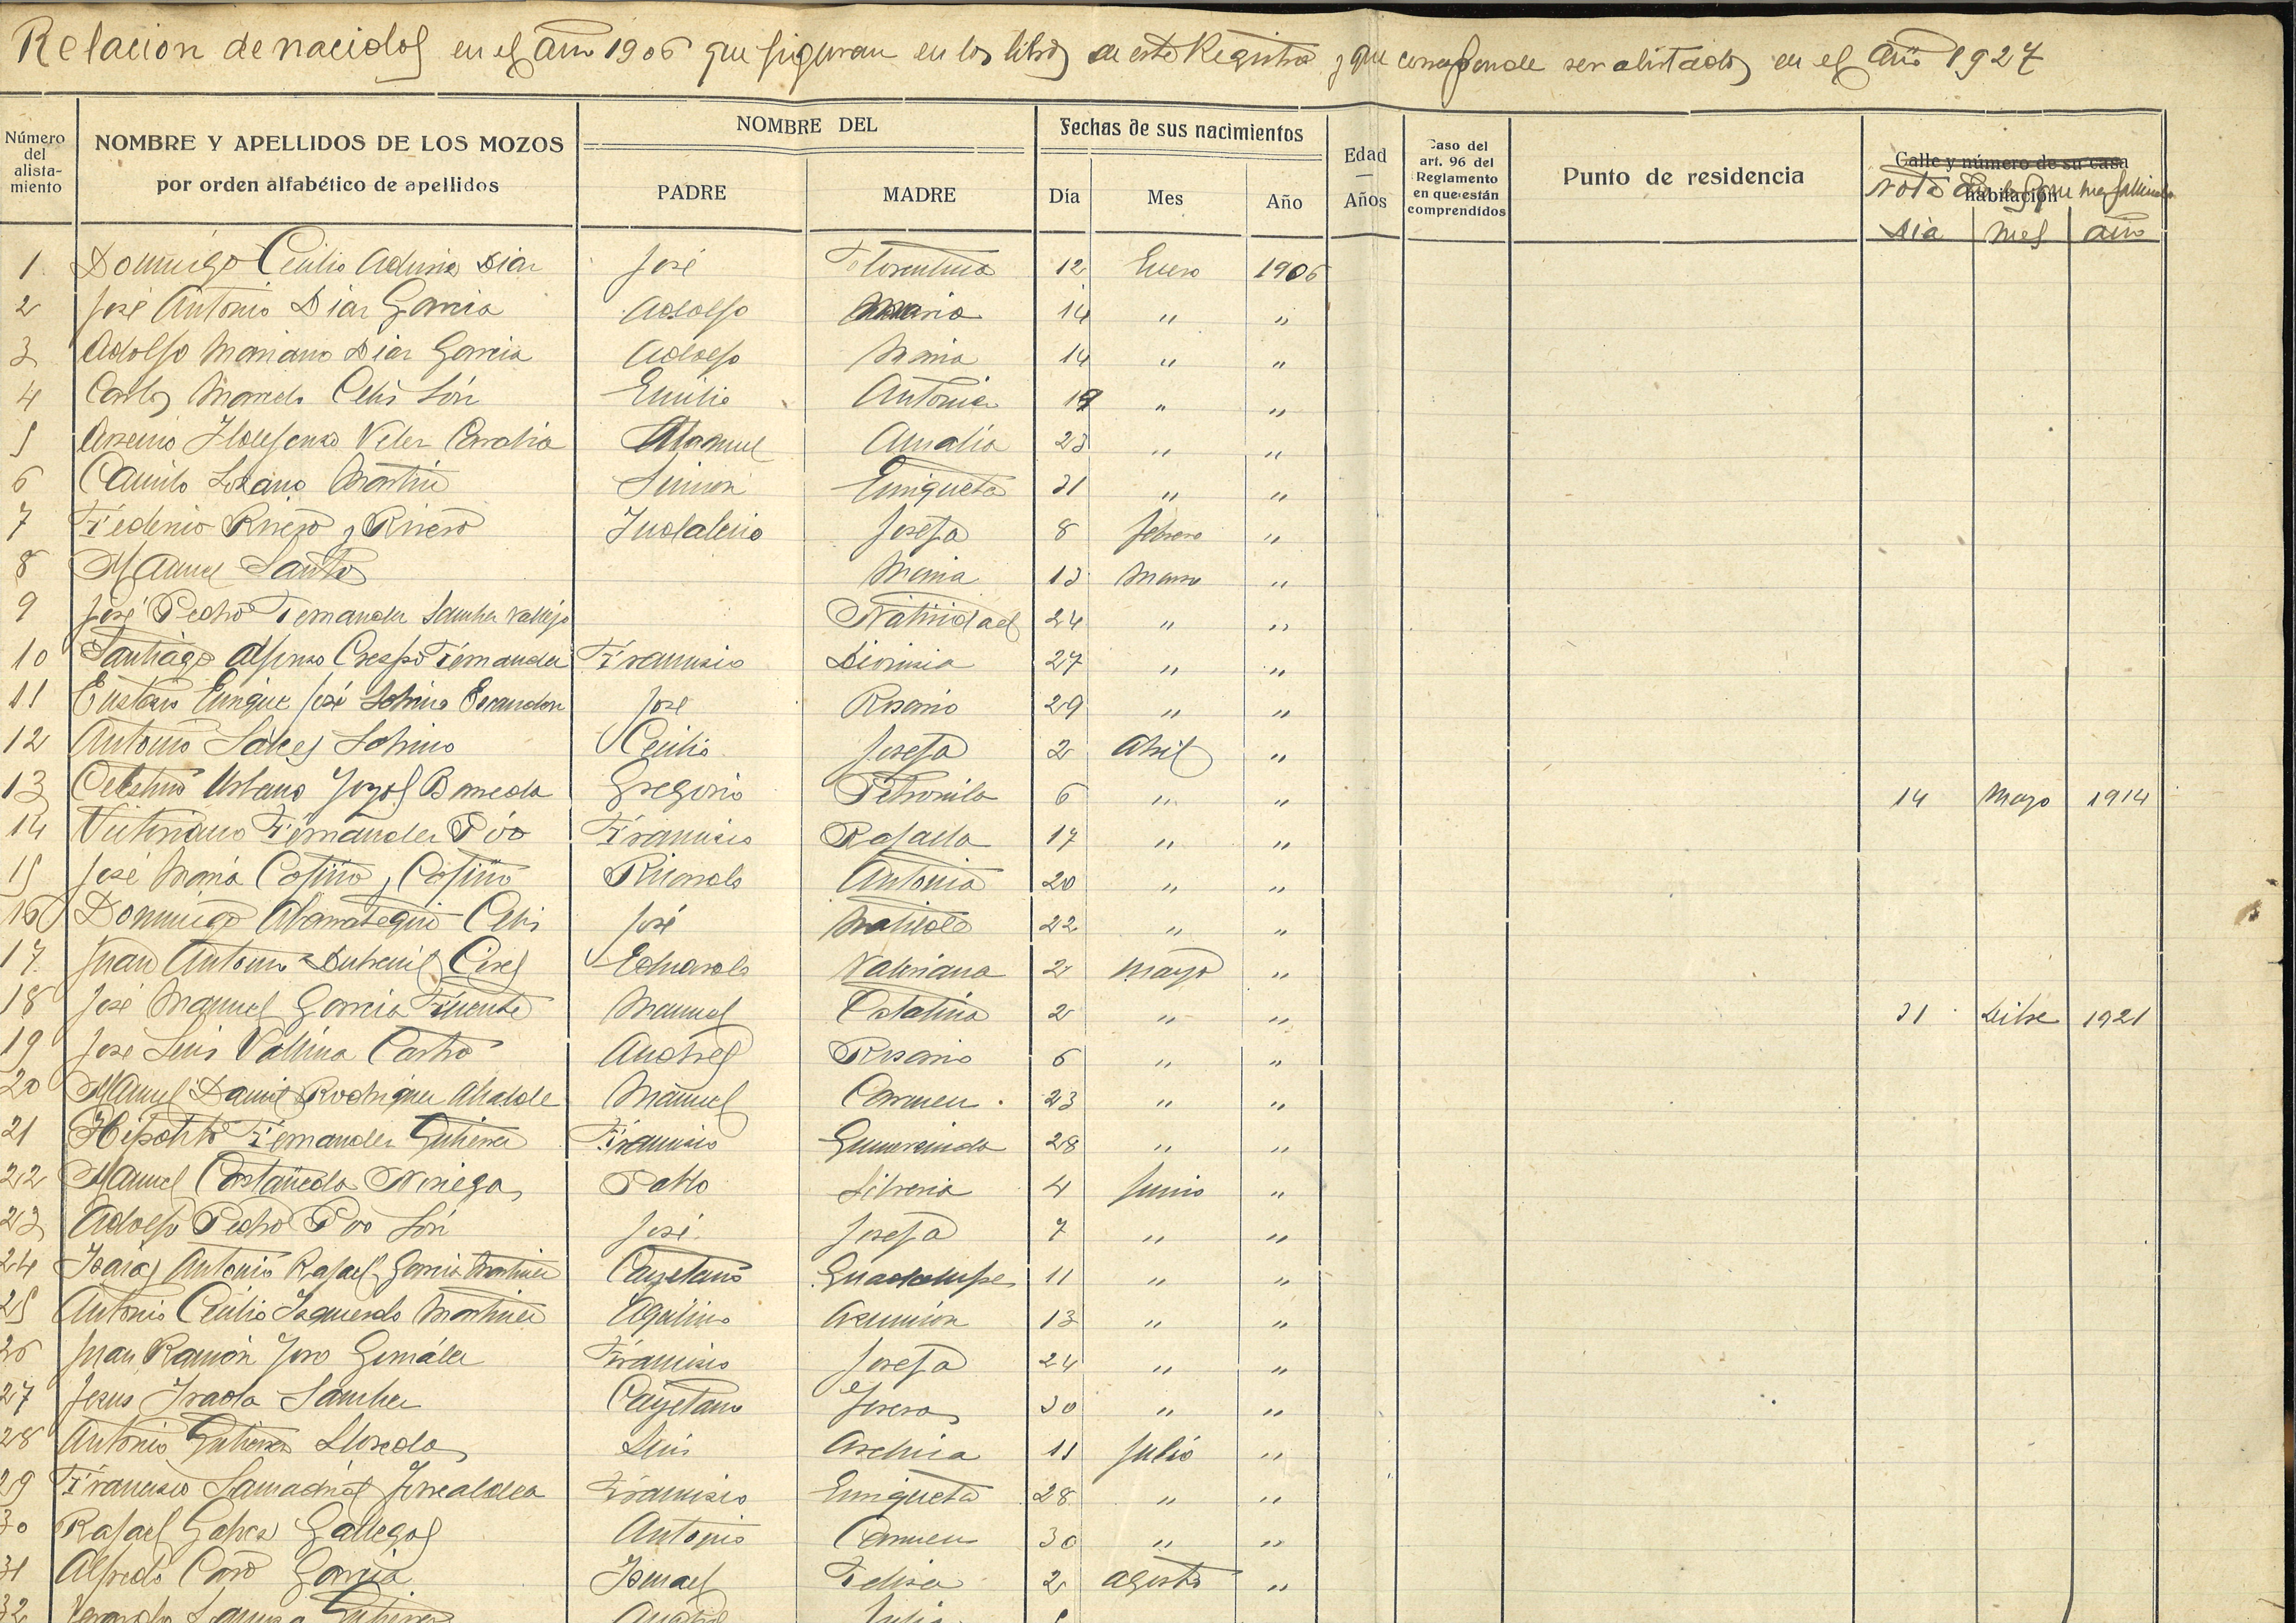 Relacion de nacidos en el año 1906 que figuran en los libros de este Registro y que corresponde ser alistados en el año 1927
Número del alista- miento
NOMBRE Y APELLIDOS DE LOS MOZOS
por orden alfabético de apellidos
NOMBRE DEL
PADRE MADRE
Fechas de sus nacimientos
Día Mes Año
Edad — Años
Caso del art. 96 del Reglamento en que están comprendidos
Punto de residencia
Calle y número de su casa habitación
Nota de los que han fallecido
Dia mes año
1 Domingo Cecilio Diaz José Florentina 12 Enero 1906
2 José Antonio Diaz Garcia Adolfo Maria 14 " "
3 Adolfo Mariano Diaz Garcia Adolfo Maria 14 " "
4 Carlos Marcelo Celis Són Emilio Antonia 19 " "
5 Arsenio Ildefonso Velez Manuel Amalia 23 " "
6 Camilo Lozano Martin Simon Enriqueta 31 " "
7 Federico Rivero y Rivero Indalecio Josefa 8 febrero "
8 Manuel Santos Maria 13 Marzo "
9 José Pedro Fernandez Sanchez Vallejo Natividad 24 " "
10 Santiago Alfonso Crespo Fernandez Francisco Dionisia 27 " "
11 Eustasio Enrique José Sobrino Escandon José Rosario 29 " "
12 Antonio Salces Sobrino Cecilio Josefa 2 Abril "
13 Celestino Urbano Hoyos Barreda Gregorio Petronila 6 " " 14 Mayo 1914
14 Victoriano Fernandez Póo Francisco Rafaela 17 " "
15 José Maria Cofiño y Cofiño Ricardo Antonia 20 " "
16 Domingo Abarrategui Celis José Matilde 22 " "
17 Juan Antonio Dutreuil Cires Eduardo Valeriana 2 mayo "
18 José Manuel Garcia Fuente Manuel Catalina 2 " " 31 Dibre 1921
19 José Luis Vallina Castro Andres Rosario 6 " "
20 Manuel Daniel Rodriguez Alcalde Manuel Carmen 23 " "
21 Hipolito Fernandez Gutierrez Francisco Gumersinda 28 " "
22 Manuel Castañeda Noriega Pablo Liberia 4 Junio "
23 Adolfo Pedro Poo Són José Josefa 7 " "
24 Isaias Antonio Rafael Garcia Martinez Cayetano Guadalupe 11 " "
25 Antonio Cecilio Izquierdo Martinez Agelino Asuncion 13 " "
26 Juan Ramón Gonzálex Francisco Josefa 24 " "
27 Jesus Iraola Sanchez Cayetano Teresa 30 " "
28 Antonio Gutierrez Lloreda Luis 11 Julio "
29 Francisco Samadrid Torrealdea Francisco Enriqueta 28 " "
30 Rafael Galvez Gallegos Antonio Carmen 30 " "
31 Alfredo Caso Garcia Ismael Felisa 2 agosto "
32 Gutierrez Julia